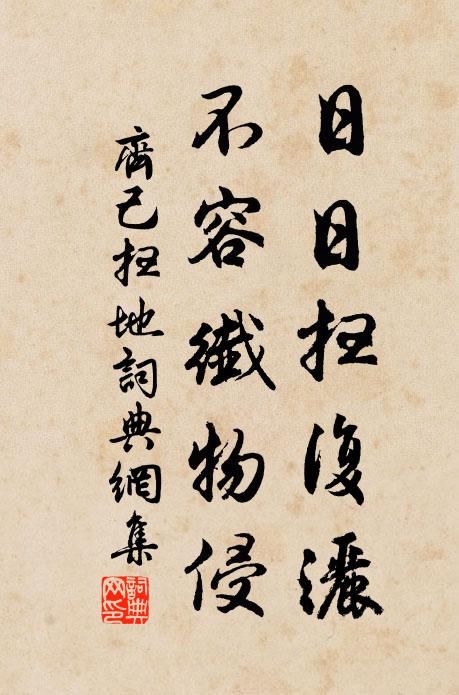 日日扫復灑
不容纖物侵
齊己扫地詞典網集
詞典网印